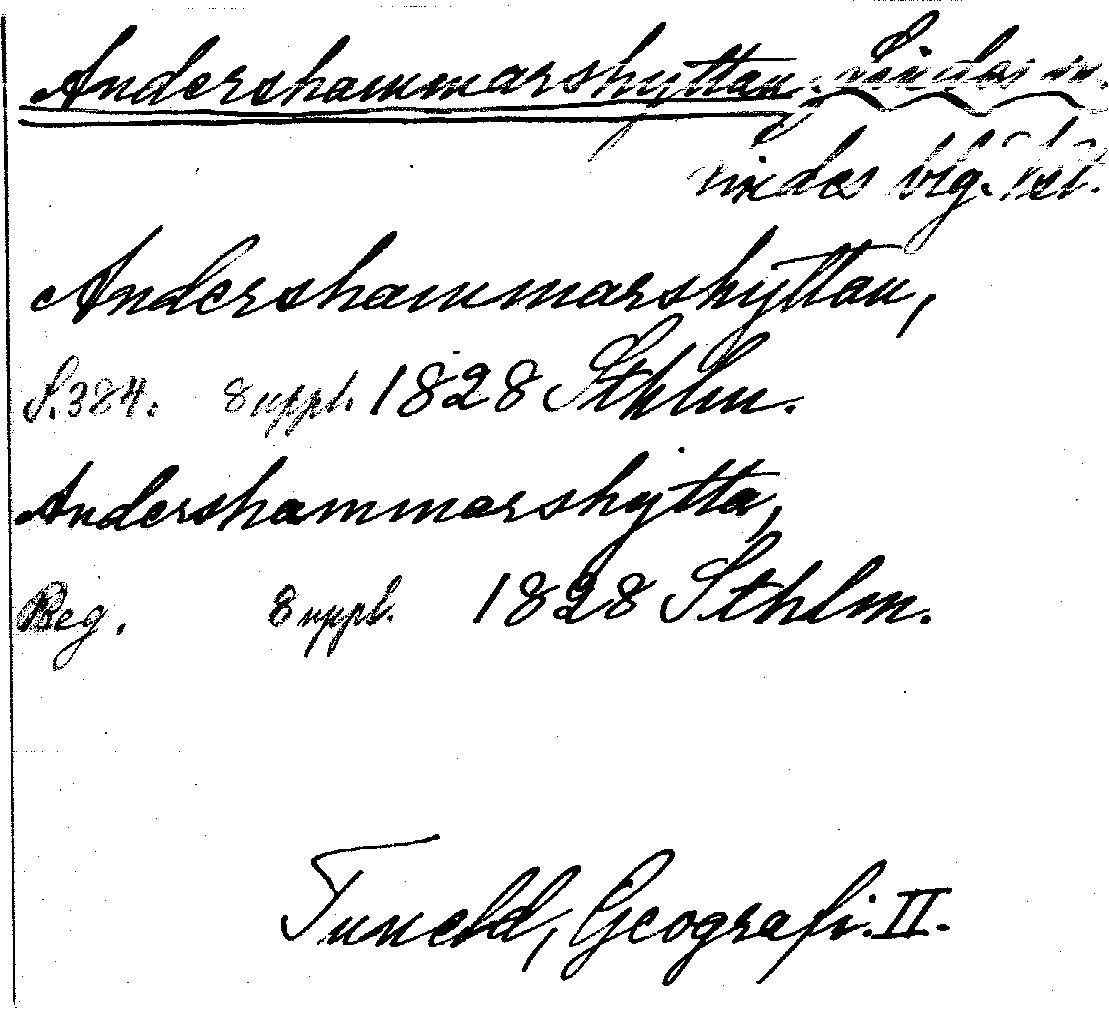 Andershammarshyttan, Lindes sn.
Lindes blg. Vstm.
Andershammarshyttan,
S. 384. 8 uppl. 1828 Sthlm.
Andershammarshytta,
Reg. 8 uppl. 1828 Sthlm.
Tuneld, Geografi. II.